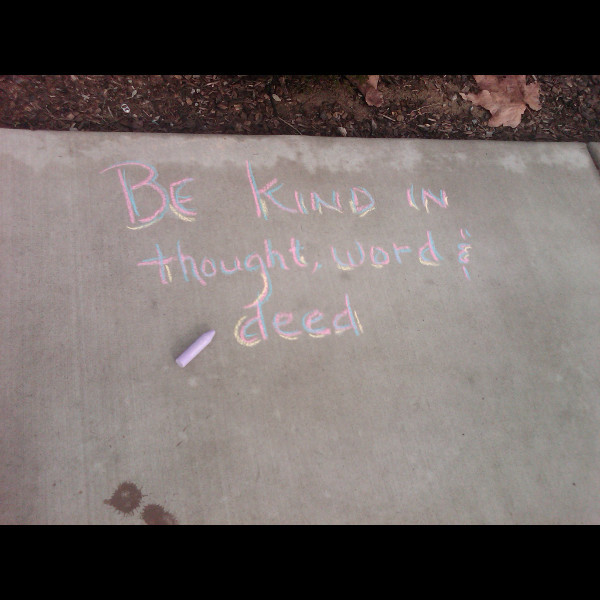 BE KIND IN
thought, word &
deed